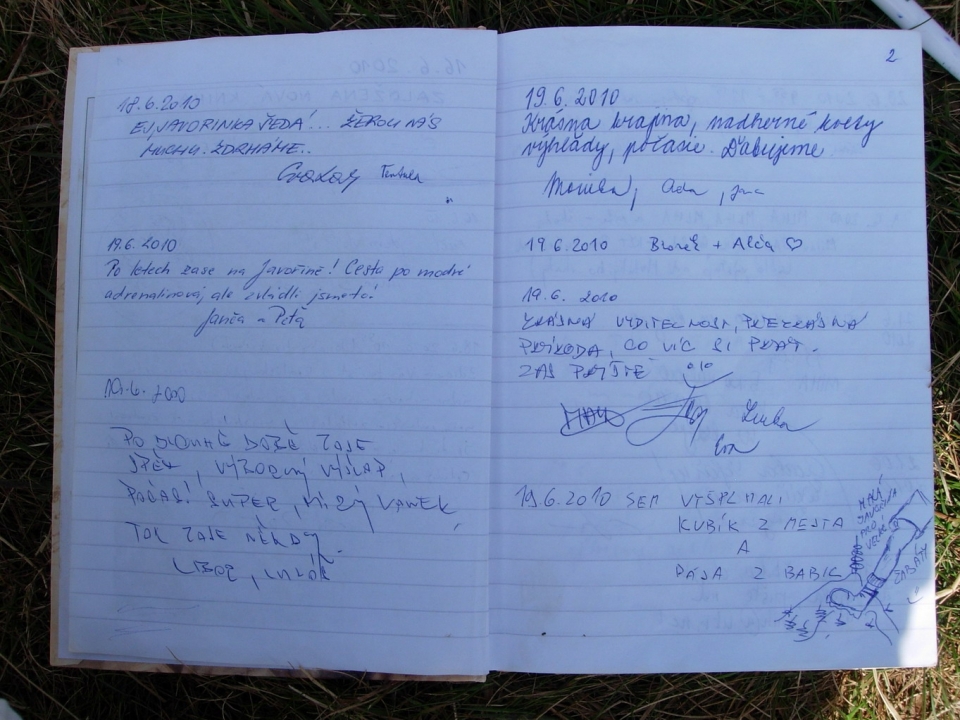 18.6.2010
EJ, JAVORINKA ŠEDÁ!... ŽEROU NÁS
MUCHY. ZDRHÁME..
19.6.2010
Po letech zase na Javořině! Cesta po modré
adrenalinová, ale zvládli jsme to!
Janča a Peťa
19.6.
PO DLOUHÉ DOBĚ ZASE
ZPĚT, VÝBORNÝ VÝŠLAP,
SUPER,
TAK ZASE NĚKDY.
2
19.6.2010
Krásna krajina, nádherné kvety
výhľady, počasie. Ďakujeme
Monika,
19.6.2010 + Alča ♡
19.6. 2010
KRÁSNÁ VIDITELNOST, PŘEKRÁSNÁ
PŘÍRODA, CO VÍC SI PŘÁT.
ZAS PŘÍŠTĚ
Eva
19.6.2010 SEM VYŠPLHALI
KUBÍK Z MESTA
A
PÁJA Z BABIC
MALÁ
JAVOŘINA
PRO
VELKÉ
ŽABÁTY